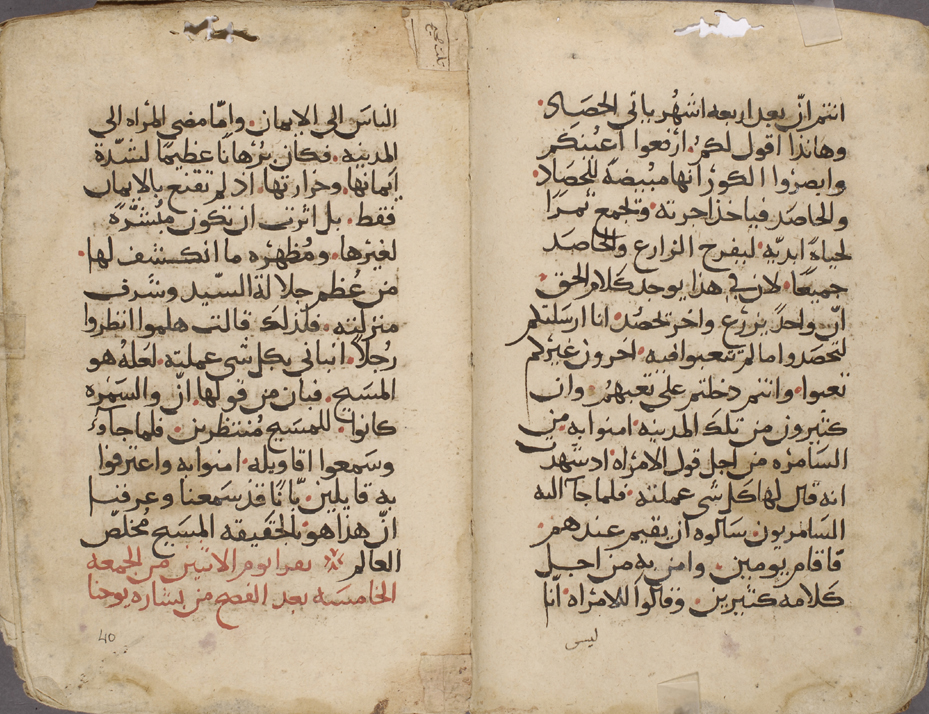 انتم ان بعد اربعه اشهر ياتي الحصاد
وهانذا اقول لكم ارفعوا اعينكم
وابصروا الكور انها مبيضه للحصاد
والحاصد فياخذ اجرته وتجمع ثمرا
لحياة ابديه ليفرح الزارع والحاصد
جميعا لان في هذا يوجد كلام الحق
ان واحد يزرع واخر تحصد انا ارسلتكم
لتحصدوا ما لم تتعبوا فيه اخرون غيركم
تعبوا وانتم دخلتم على تعبهم وان
كثيرون من تلك المدينه امنوا به من
السامره من اجل قول الامراه اذ تشهد
انه قال لها كل شي عملته فلما جآ اليه
السامريون سالوه ان يقيم عندهم
فاقام يومين وامن به من اجل
كلامه كثيرين وقالوا للامراه انا
ليس
الناس الى الايمان واما مضي المراه الى
المدينه فكان برهانا عظيما لشدة
ايمانها وحرارتها اذ لم تقنع بالايمان
فقط بل اثرت ان تكون مبشرة
لغيرها ومظهره ما انكشف لها
من عظم جلالة السيد وشرف
منزلته فلذلك قالت هلموا انظروا
رجلا انباني بكل شي عملته لعله هو
المسيح فبان من قولها ان والسمره
كانوا للمسيح منتظرين فلما جاوء
وسمعوا اقاويله امنوا به واعترفوا
به قايلين بانا قد سمعنا وعرفنا
ان هذا هو بالحقيقه المسيح مخلص
العالم يقرا يوم الاثنين من الجمعه
الخامسه بعد الفصح من بشاره يوحنا
40